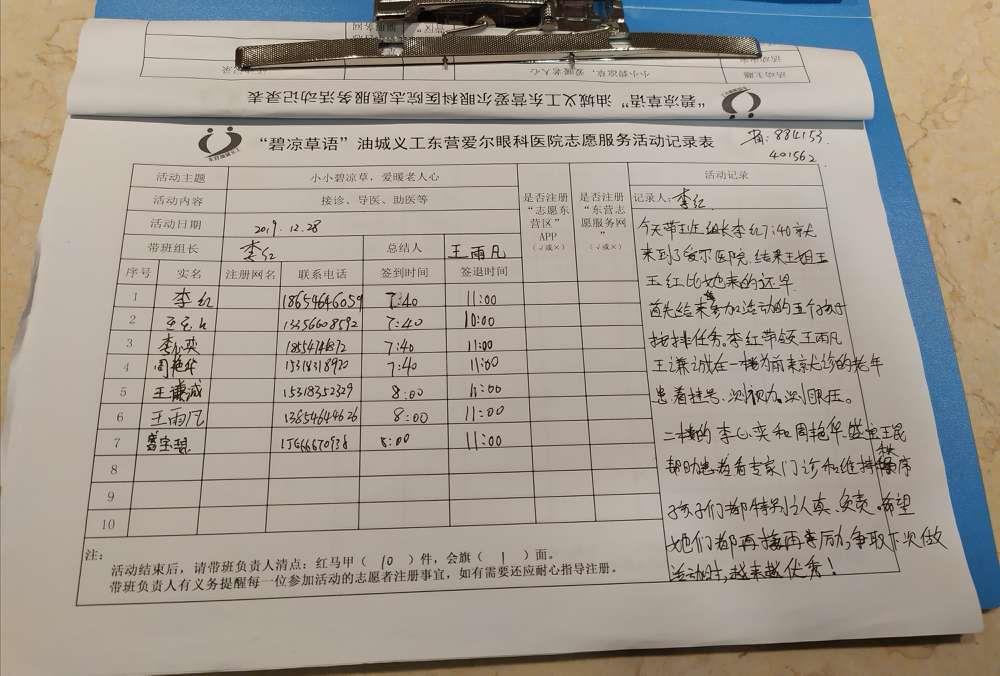 “碧凉草语”油城义工东营爱尔眼科医院志愿服务活动记录表
“碧凉草语”油城义工东营爱尔眼科医院志愿服务活动记录表
884153
401562
活动主题 小小碧凉草，爱暖老人心 是否注册“志愿东营区”APP（√或×） 是否注册“东营志愿服务网”（√或×） 活动记录
活动内容 接诊、导医、助医等 记录人：李红
活动日期 2019.12.28
带班组长 李红 总结人 王雨凡
序号 实名 注册网名 联系电话 签到时间 签退时间
1 李红 18654646059 7:40 11:00
2 13356608592 7:40 10:00
3 李心奕 7:40 11:00
4 周艳华 15318318920 7:40 11:00
5 王谦诚 15318352329 8:00 11:00
6 王雨凡 13854644626 8:00 11:00
7 8:00 11:00
8
9
10
今天带班组长李红7:40就
来到了爱尔医院，结果王姐王
玉红比她来的还早。
首先给来参加活动的五个孩子
按排任务。李红带领王雨凡
王谦诚在一楼为前来就诊的老年
患者挂号、测视力、测眼压。
二楼的李心奕和周艳华
帮助患者看专家门诊和维持秩序
孩子们都特别认真、负责。希望
她们都再接再厉励，争取下次做
活动时，越来越优秀！
注：
活动结束后，请带班负责人清点：红马甲（ 10 ）件，会旗（ 1 ）面。
带班负责人有义务提醒每一位参加活动的志愿者注册事宜，如有需要还应耐心指导注册。